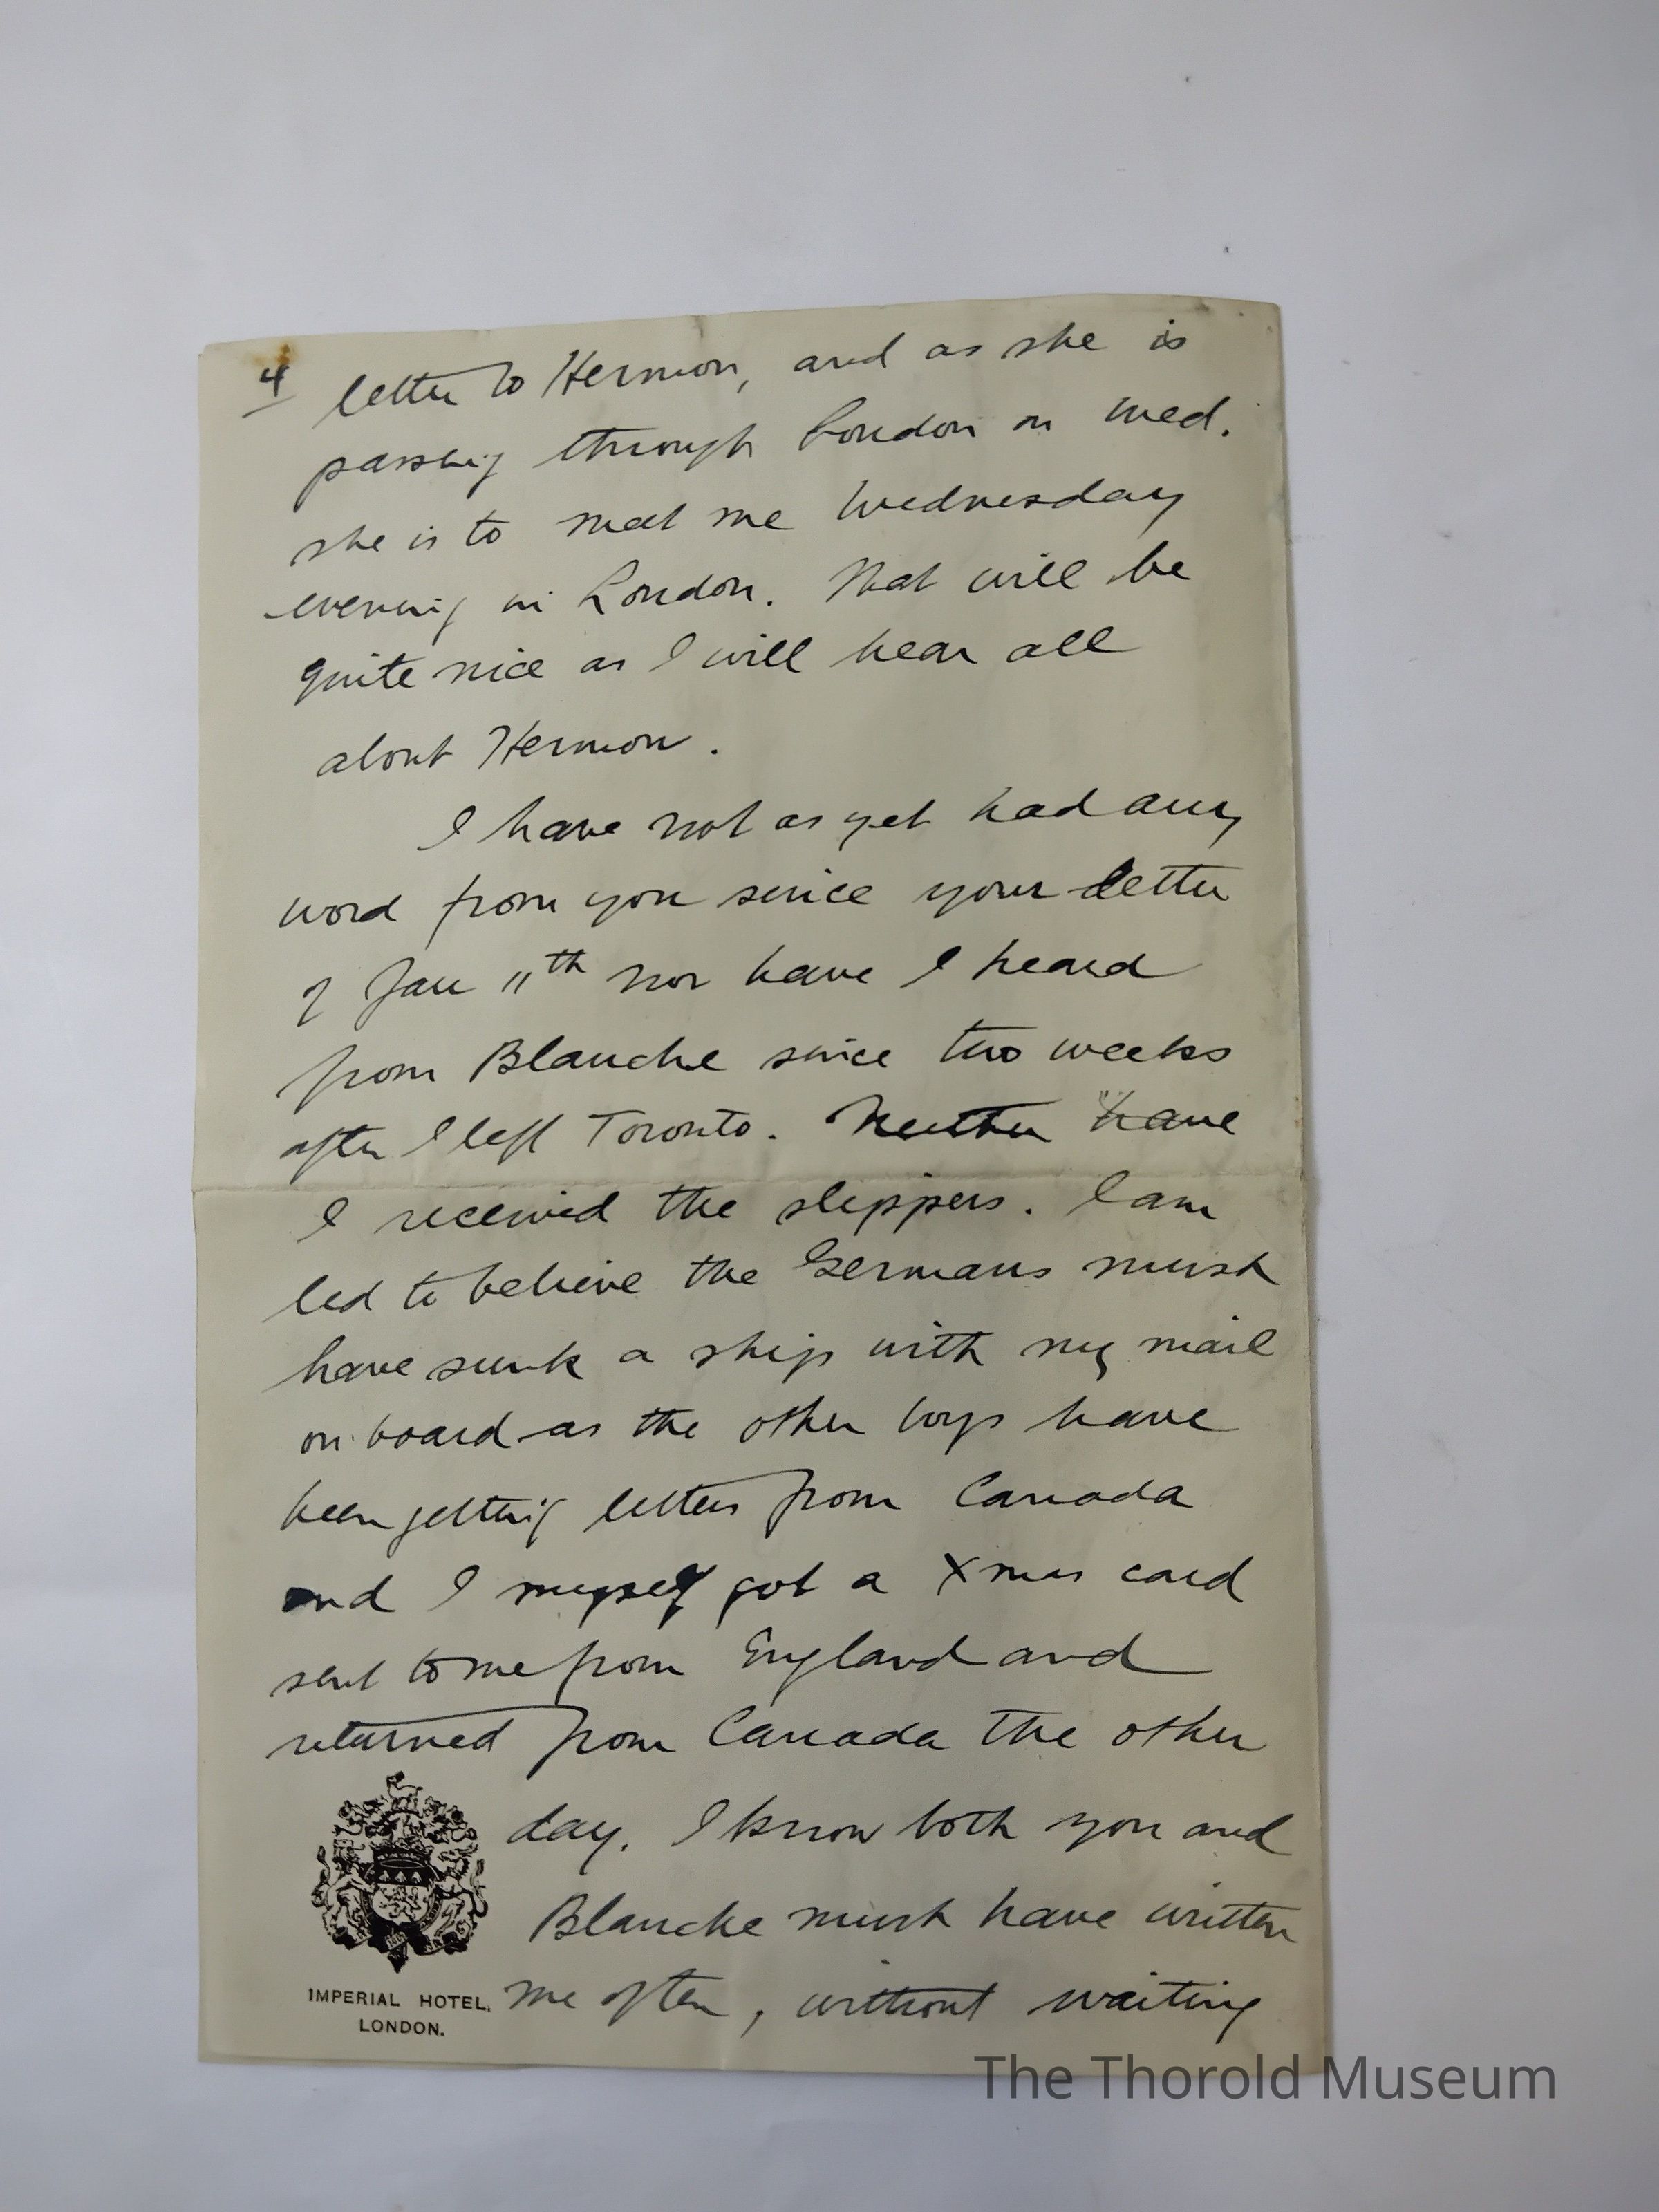 4 letter to Hermon, and as she is
passing through London on Wed.
she is to meet me Wednesday
evening in London. That will be
quite nice as I will hear all
about Hermon.
I have not as yet had any
word from you since your letter
of Jan 11th nor have I heard
from Blanche since two weeks
after I left Toronto. Neither have
I received the slippers. I am
led to believe the Germans must
have sunk a ship with my mail
on board as the other boys have
been getting letters from Canada
and I myself got a Xmas card
sent to me from England and
returned from Canada the other
day. I know both you and
Blanche must have written
me often, without waiting
IMPERIAL HOTEL,
LONDON.
The Thorold Museum